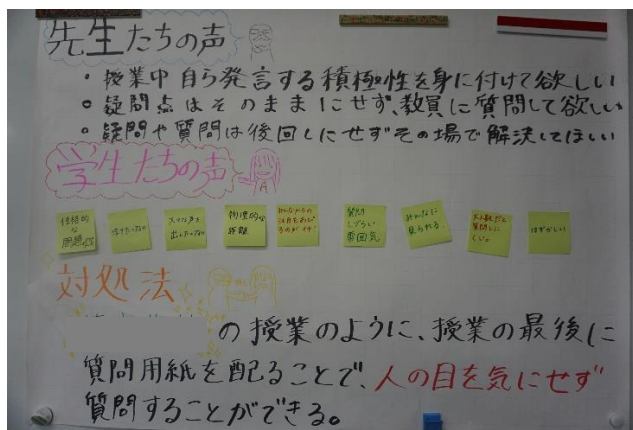 先生たちの声
・授業中自ら発言する積極性を身に付けて欲しい
○疑問点はそのままにせず、教員に質問して欲しい
・疑問や質問は後回しにせずその場で解決してほしい
学生たちの声
性格的
な
問題
大きな声を
出したくない
物理的な
距離
みんなからの
注目をあび
るのがイヤ!
質問
しづらい
雰囲気
みんなに
見られる
大人数だと
質問しに
くい。
はずかしい
対処法
の授業のように、授業の最後に
質問用紙を配ることで、人の目を気にせず
質問することができる。